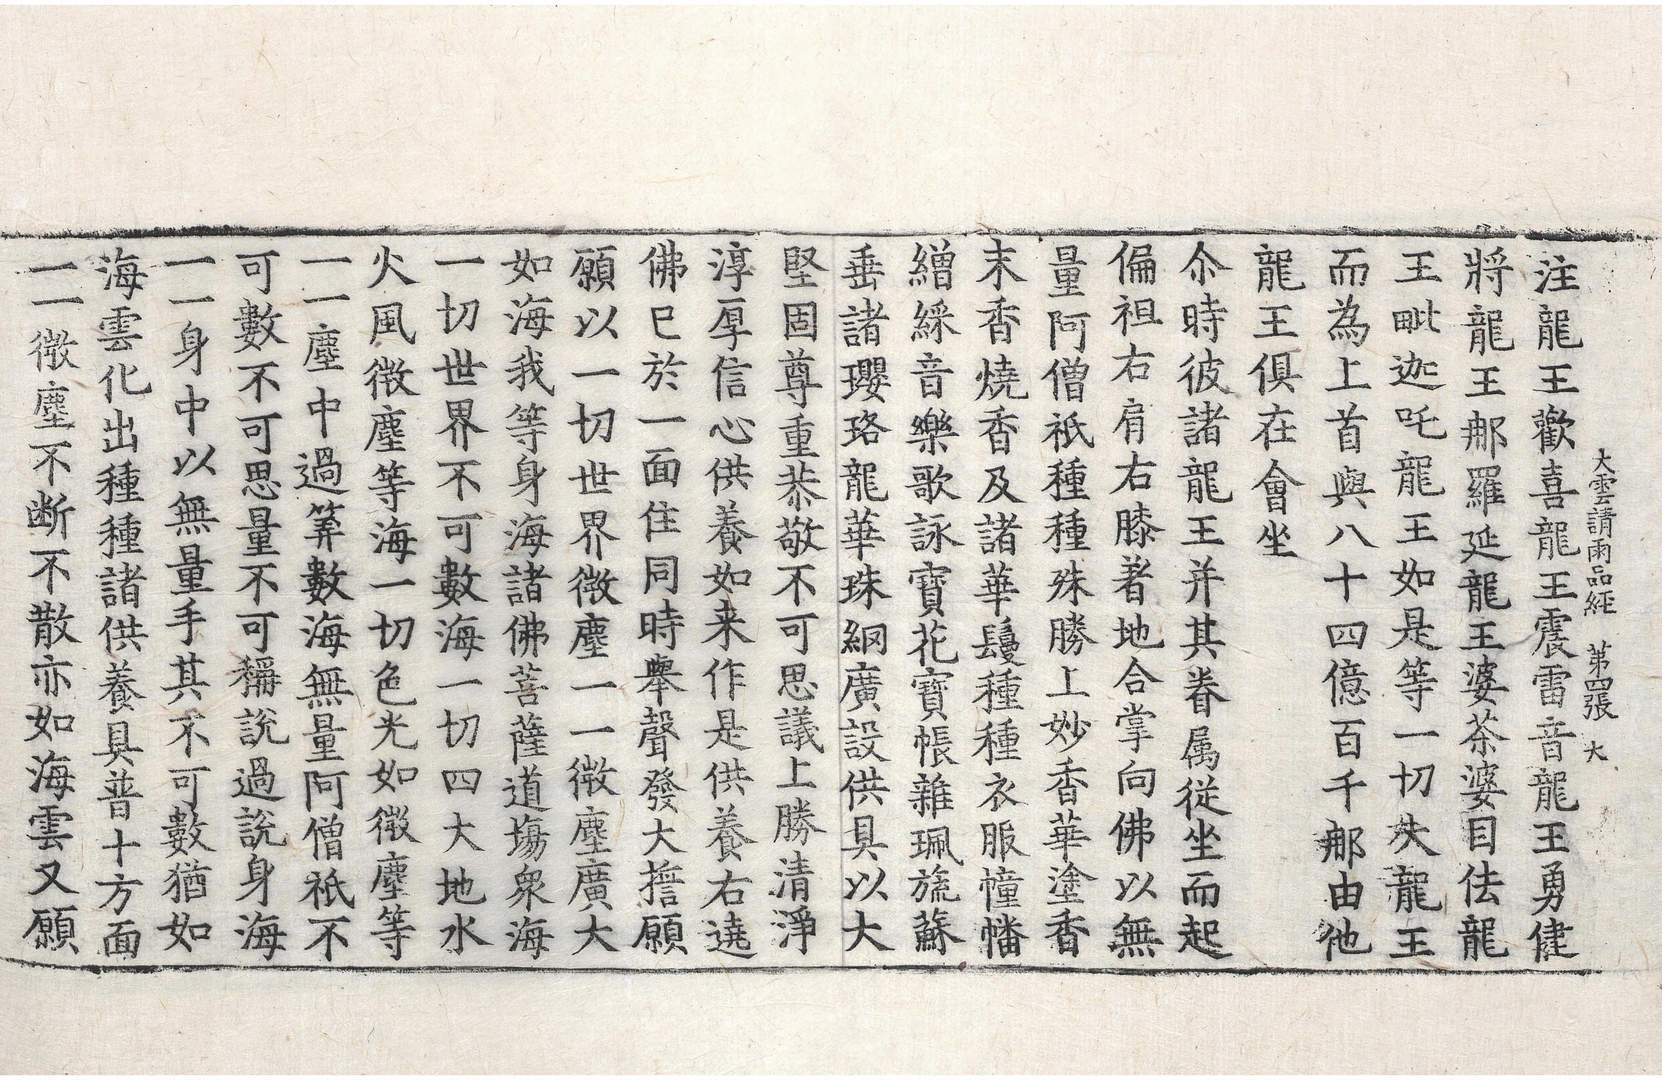 大雲請雨品經 第四張 大
注龍王歡喜龍王震雷音龍王勇健
將龍王那羅延龍王婆茶婆目佉龍
王毗迦吒龍王如是等一切大龍王
而為上首與八十四億百千那由他
龍王俱在會坐
尒時彼諸龍王并其眷属従坐而起
偏袒右肩右膝著地合掌向佛以無
量阿僧祇種種殊勝上妙香華塗香
末香燒香及諸華鬘種種衣服幢幡
繒綵音樂歌詠寶花寶帳雜珮旒蘇
垂諸瓔珞龍華珠網廣設供具以大
堅固尊重恭敬不可思議上勝清淨
淳厚信心供養如来作是供養右遶
佛已於一面住同時舉聲發大誓願
願以一切世界微塵一一微塵廣大
如海我等身海諸佛菩薩道場衆海
一切世界不可數海一切四大地水
火風微塵等海一切色光如微塵等
一一塵中過筭數海無量阿僧祇不
可數不可思量不可稱說過說身海
一一身中以無量手其不可數猶如
海雲化出種種諸供養具普十方面
一一微塵不断不散亦如海雲又願